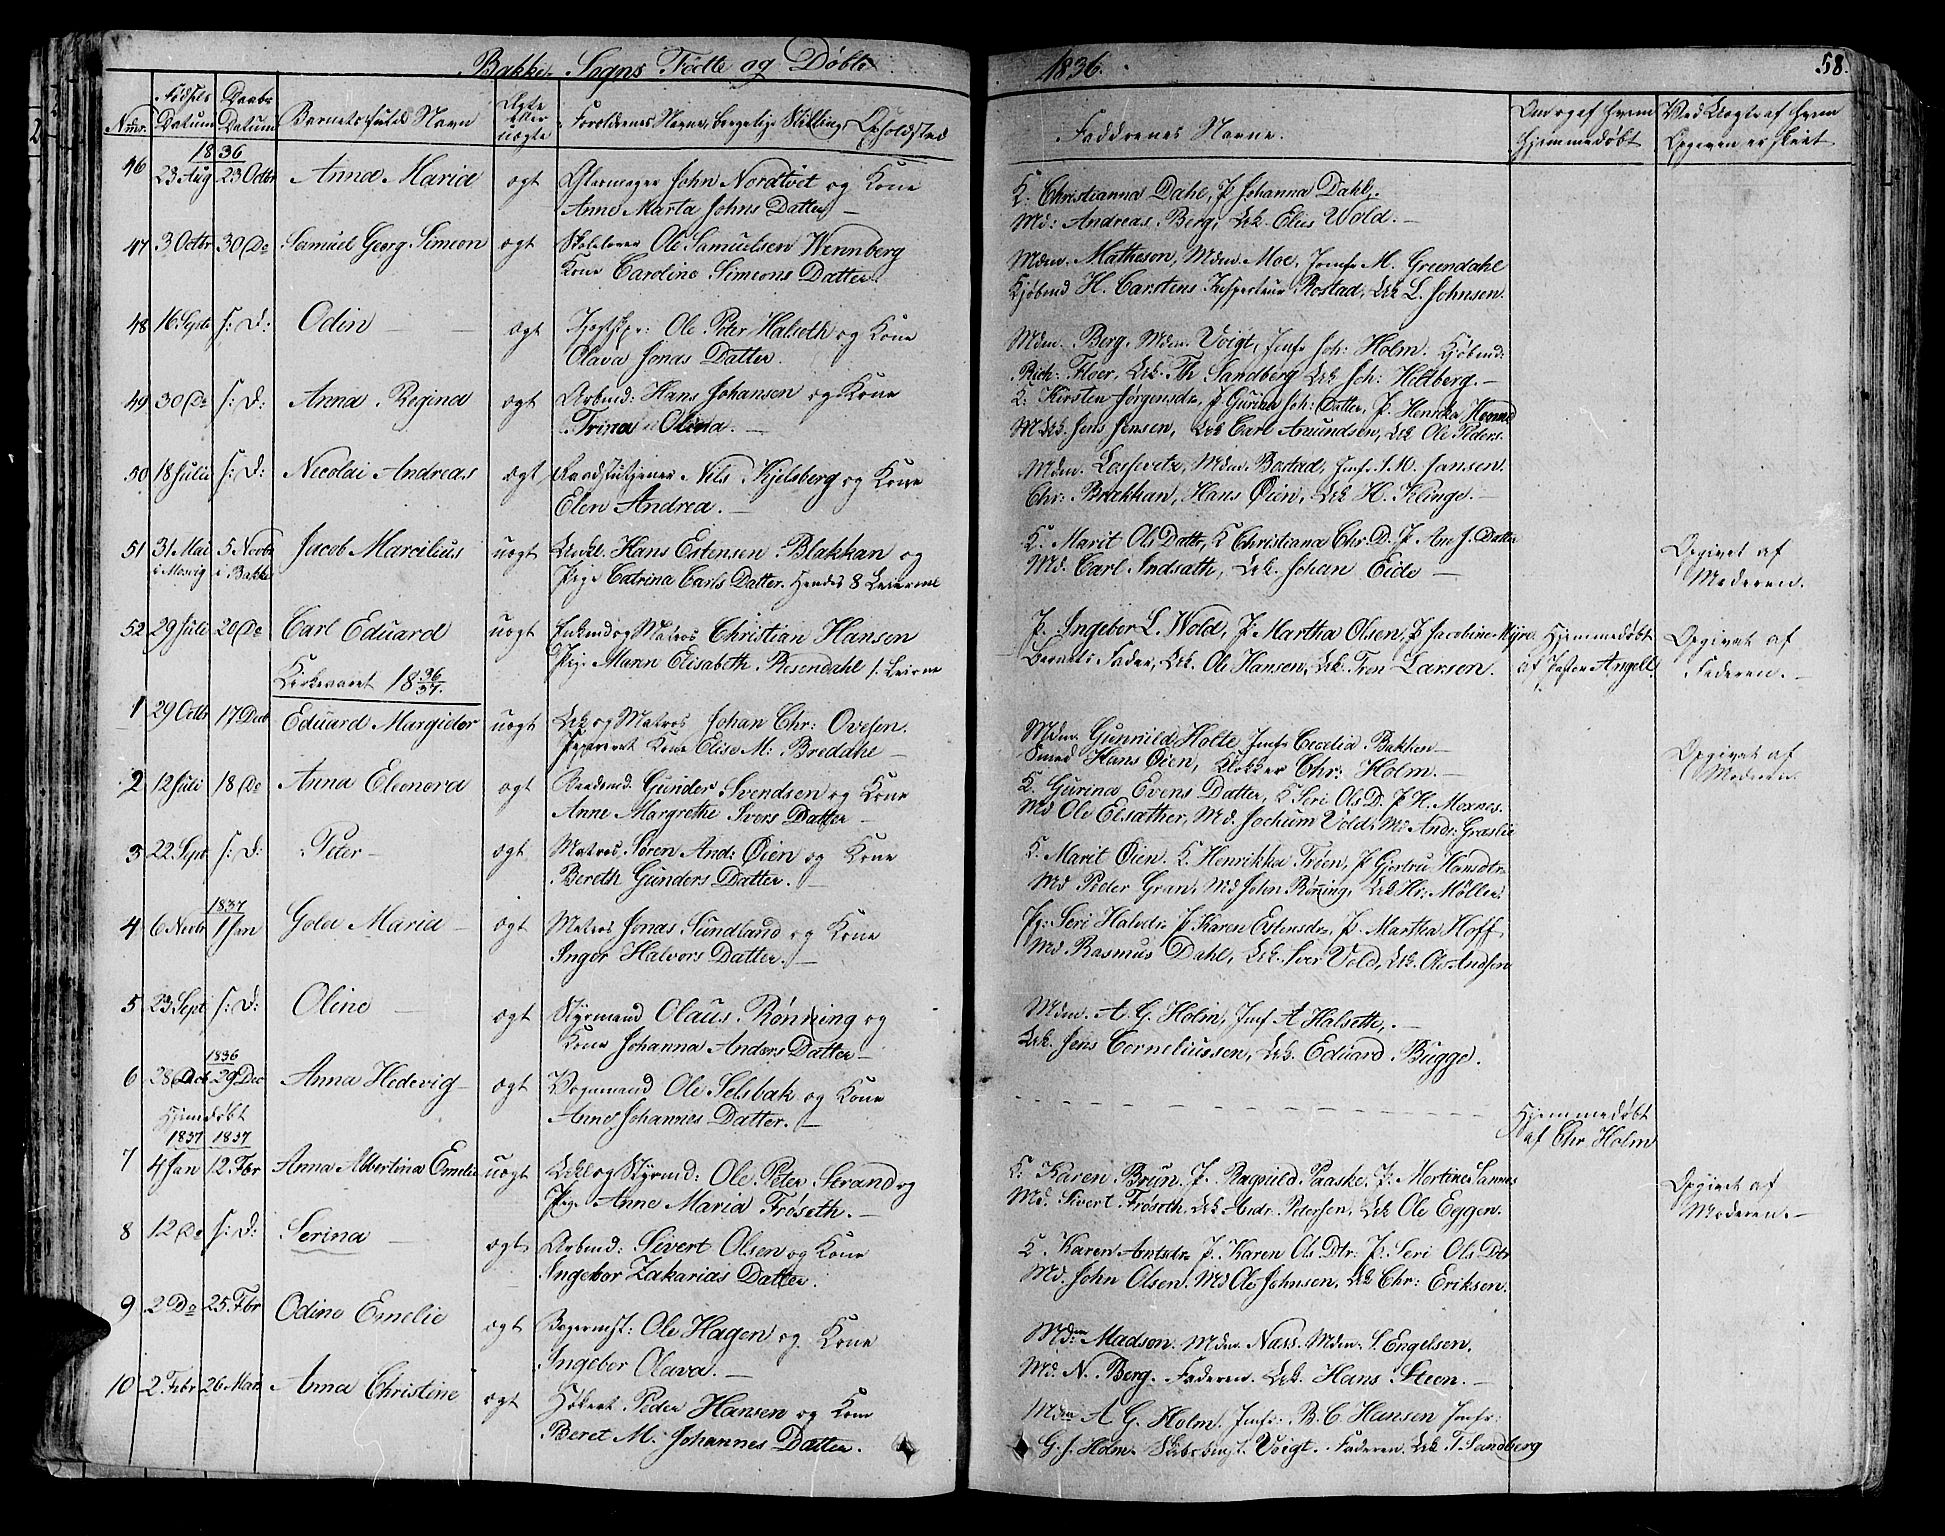 Bakke Sogns Fødte og Døbte 1836. 58.
Nmr. Fødsels Datum Daabs Datum Barnets fulde Navn Ægte eller uægte Forældrenes Navne, borgelige Stilling, Opholdsted Faddrenes Navne. Om og af hvem Hjemmedøbt Ved Uægte af hvem Opgiven er skeet
1836
46 23 Aug 23 Octbr Anna Maria ægt Glarmager John Nordtvet og Kone
Anne Marta Johns Datter —
K: Christianna Dahl, P Johanna Dahl,
Md: Andreas Berg, Uck Elias Wold. —
47 3 Octbr 30 Do Samuel Georg Simeon ægt Skolelærer Ole Samuelsen Wennberg
Kone Caroline Simeons Datter.
Mdm. Matheson, Mdm. Moe, Jomfr M. Greendahl
Kjøbmd H. Carstens Inspecteur Rostad, Uck L. Johnsen.
48 16 Septb s: D: Odin — ægt Ole Peter Halseth og Kone
Olava Jonas Datter.
Mdm. Berg, Mdm. Voigt, Jmfr Joh: Holm. Kjøbmd:
Rich: Floer, Uck. Th Sandberg Uck Joh: Holtberg. —
49 30 Do s: D: Anna Regina ægt Arbmd: Hans Johansen og Kone
Trina Olina. —
K: Kirsten Jørgensdr, P Gurina Joh: Datter, P. Henrika
M Uck Jens Jensen, Uck Carl Amundsen, Uck Ole Peders.
50 18 Julii s: D: Necolai Andreas ægt Raadstutjener Nils Kjelsberg og Kone
Elen Andrea. —
Mdm. Mdm. Bostad, Jmfr. S. M. Jansen.
Chr: Brækhan, Hans Øien, Uck H. Klinge. —
51 31 Mai 5 Novbr Jacob Marcilius uægt Uckl. Hans Estensen Blakkan og
i Mosvig i Bakke Pige Catrina Carls Datter. Hendes 8 Leierml
K. Marit Ols Datter, K Christiana Chr. D. P. Ane J. Datter
Md. Carl Indsath, Uck. Johan Eide —
Opgivet af
Moderen.
52 29 Juli 20 Do Carl Eduard uægt Enkemd og Matros Christian Hansen
Pige Marin Elisabeth Rosendahl
P. Ingebor L. Wold, P: Martha Olsen, P Jacobine Myra
Barnets Fader, Uck. Ole Hansen, Uck. Tron Larsen.
Hjemmedøbt
af Pastor Angell
Opgivet af
Faderen. —
Kirkeaaret 18 36/37.
1 29 Octb 17 Decb Eduard Margidor uægt Uck og Matros Johan Chr: Ovesen.
Separeret Kone Elise M: Bredahl —
Mdm. Gunnild Holte Jmfr Cecelia Bakken —
Smed Hans Øien, Klokker Chr: Holm. —
Opgivet af
Moderen.
2 12 Juli 18 Do Anna Eleonora ægt Gunder Svendsen og Kone
Anne Margrethe Ivers Datter —
K. Gurina Evens Datter, K Seri Ols D. P. H. Moxnes.
Md Ole Elsæther, Md. Jochum Vold, Md. Andr: Græslie
3 22 Sept s: D: Peter — ægt Matros Søren And: Øien og Kone
Bereth Gunders Datter. —
K. Marit Øien. K. Henrikka Trøen, P Gjertru Hansdtr
Md Peder Gran, Md John Rønning, Uck Hr: Møller.
1837
4 6 Novbr 1 Jan Golea Maria — ægt Matros Jonas Sundland og Kone
Inger Halvors Datter. —
Pg: Seri Halvdr P Karen Estensdr, P. Martha Hoff
Md. Rasmus Dahl, Uck. Iver Vold, Uck. Ole Andsen
5 23 Sept s: D: Oline — ægt Styrmand Olaus Rønning og
Kone Johanna Anders Datter —
Mdm. A. G. Holm, Jmf A Halseth, —
Uck. Jens Corneliussen, Uck. Eduard Bugge.
1836
6 28 Dec 29 Dec Anna Hedevig — ægt Vognmand Ole Selsbak og Kone
Hjmedøbt Anne Johannes Datter. —
Hjemmedøbt
af Chr Holm
1837 1837
7 4 Jan 12 Fbr Anna Albertina Emelia uægt Uckl og Styrmd: Ole Peter Strand og
Pige Anne Maria Frøseth. —
K: Karen Bruun, P. Ragnild Paaske, P: Mortine Sannes
Md. Sivert Frøseth, Uck. Andr. Petersen, Uck Ole Eggen.
Opgivet af
Moderen. —
8 12 Do s: D: Serina — ægt Arbmd: Sivert Olsen og Kone
Ingebor Zakarias Datter.
K. Karen Arntsdr P. Karen Ols Dtr: P: Seri Ols Dtr
Md. John Olsen. Md Ole Johnsen, Uck Chr: Eriksen.
9 2 Do 25 Fbr Odine Emelie ægt Bagermst: Ole Hagen og Kone
Ingebor Olava. —
Mdm Madsen. Mdm. Næss. Mdm. S Engelsen,
Md. N. Berg. Faderen. Uck. Hans Steen. —
10 2 Febr 26 Mar Anna Christine ægt Høkert Peder Hansen og Kone
Beret M. Johannes Datter.
Mdm A G. Holm, Jmfr: B. C. Hansen Jmfr:
G. J. Holm Voigt. Faderen. Uck T. Sandberg